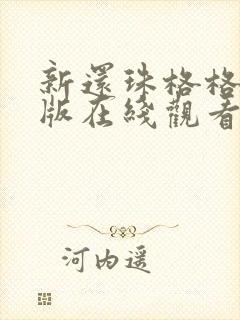 新還珠格格
版在綫觀看
河內遥